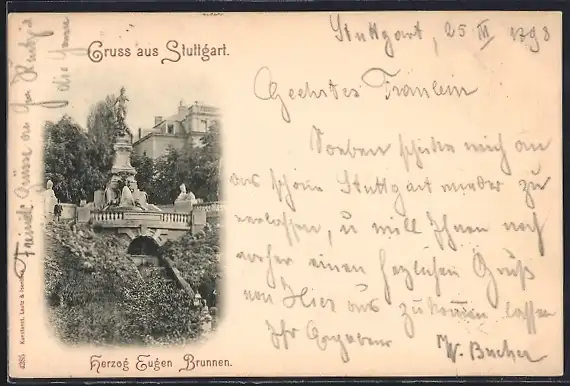 Gruss aus Stuttgart.
Stuttgart, 25 III 1898
Geehrtes Fräulein
Soeben schicke mich an
das schöne Stuttgart wieder zu
verlassen, u will Ihnen noch
vorher einen herzlichen Gruß
von Hier aus zukommen lassen
Ihr Ergebener W. Bucher
Freundl. Grüsse an
die ganze
Herzog Eugen Brunnen.
4285